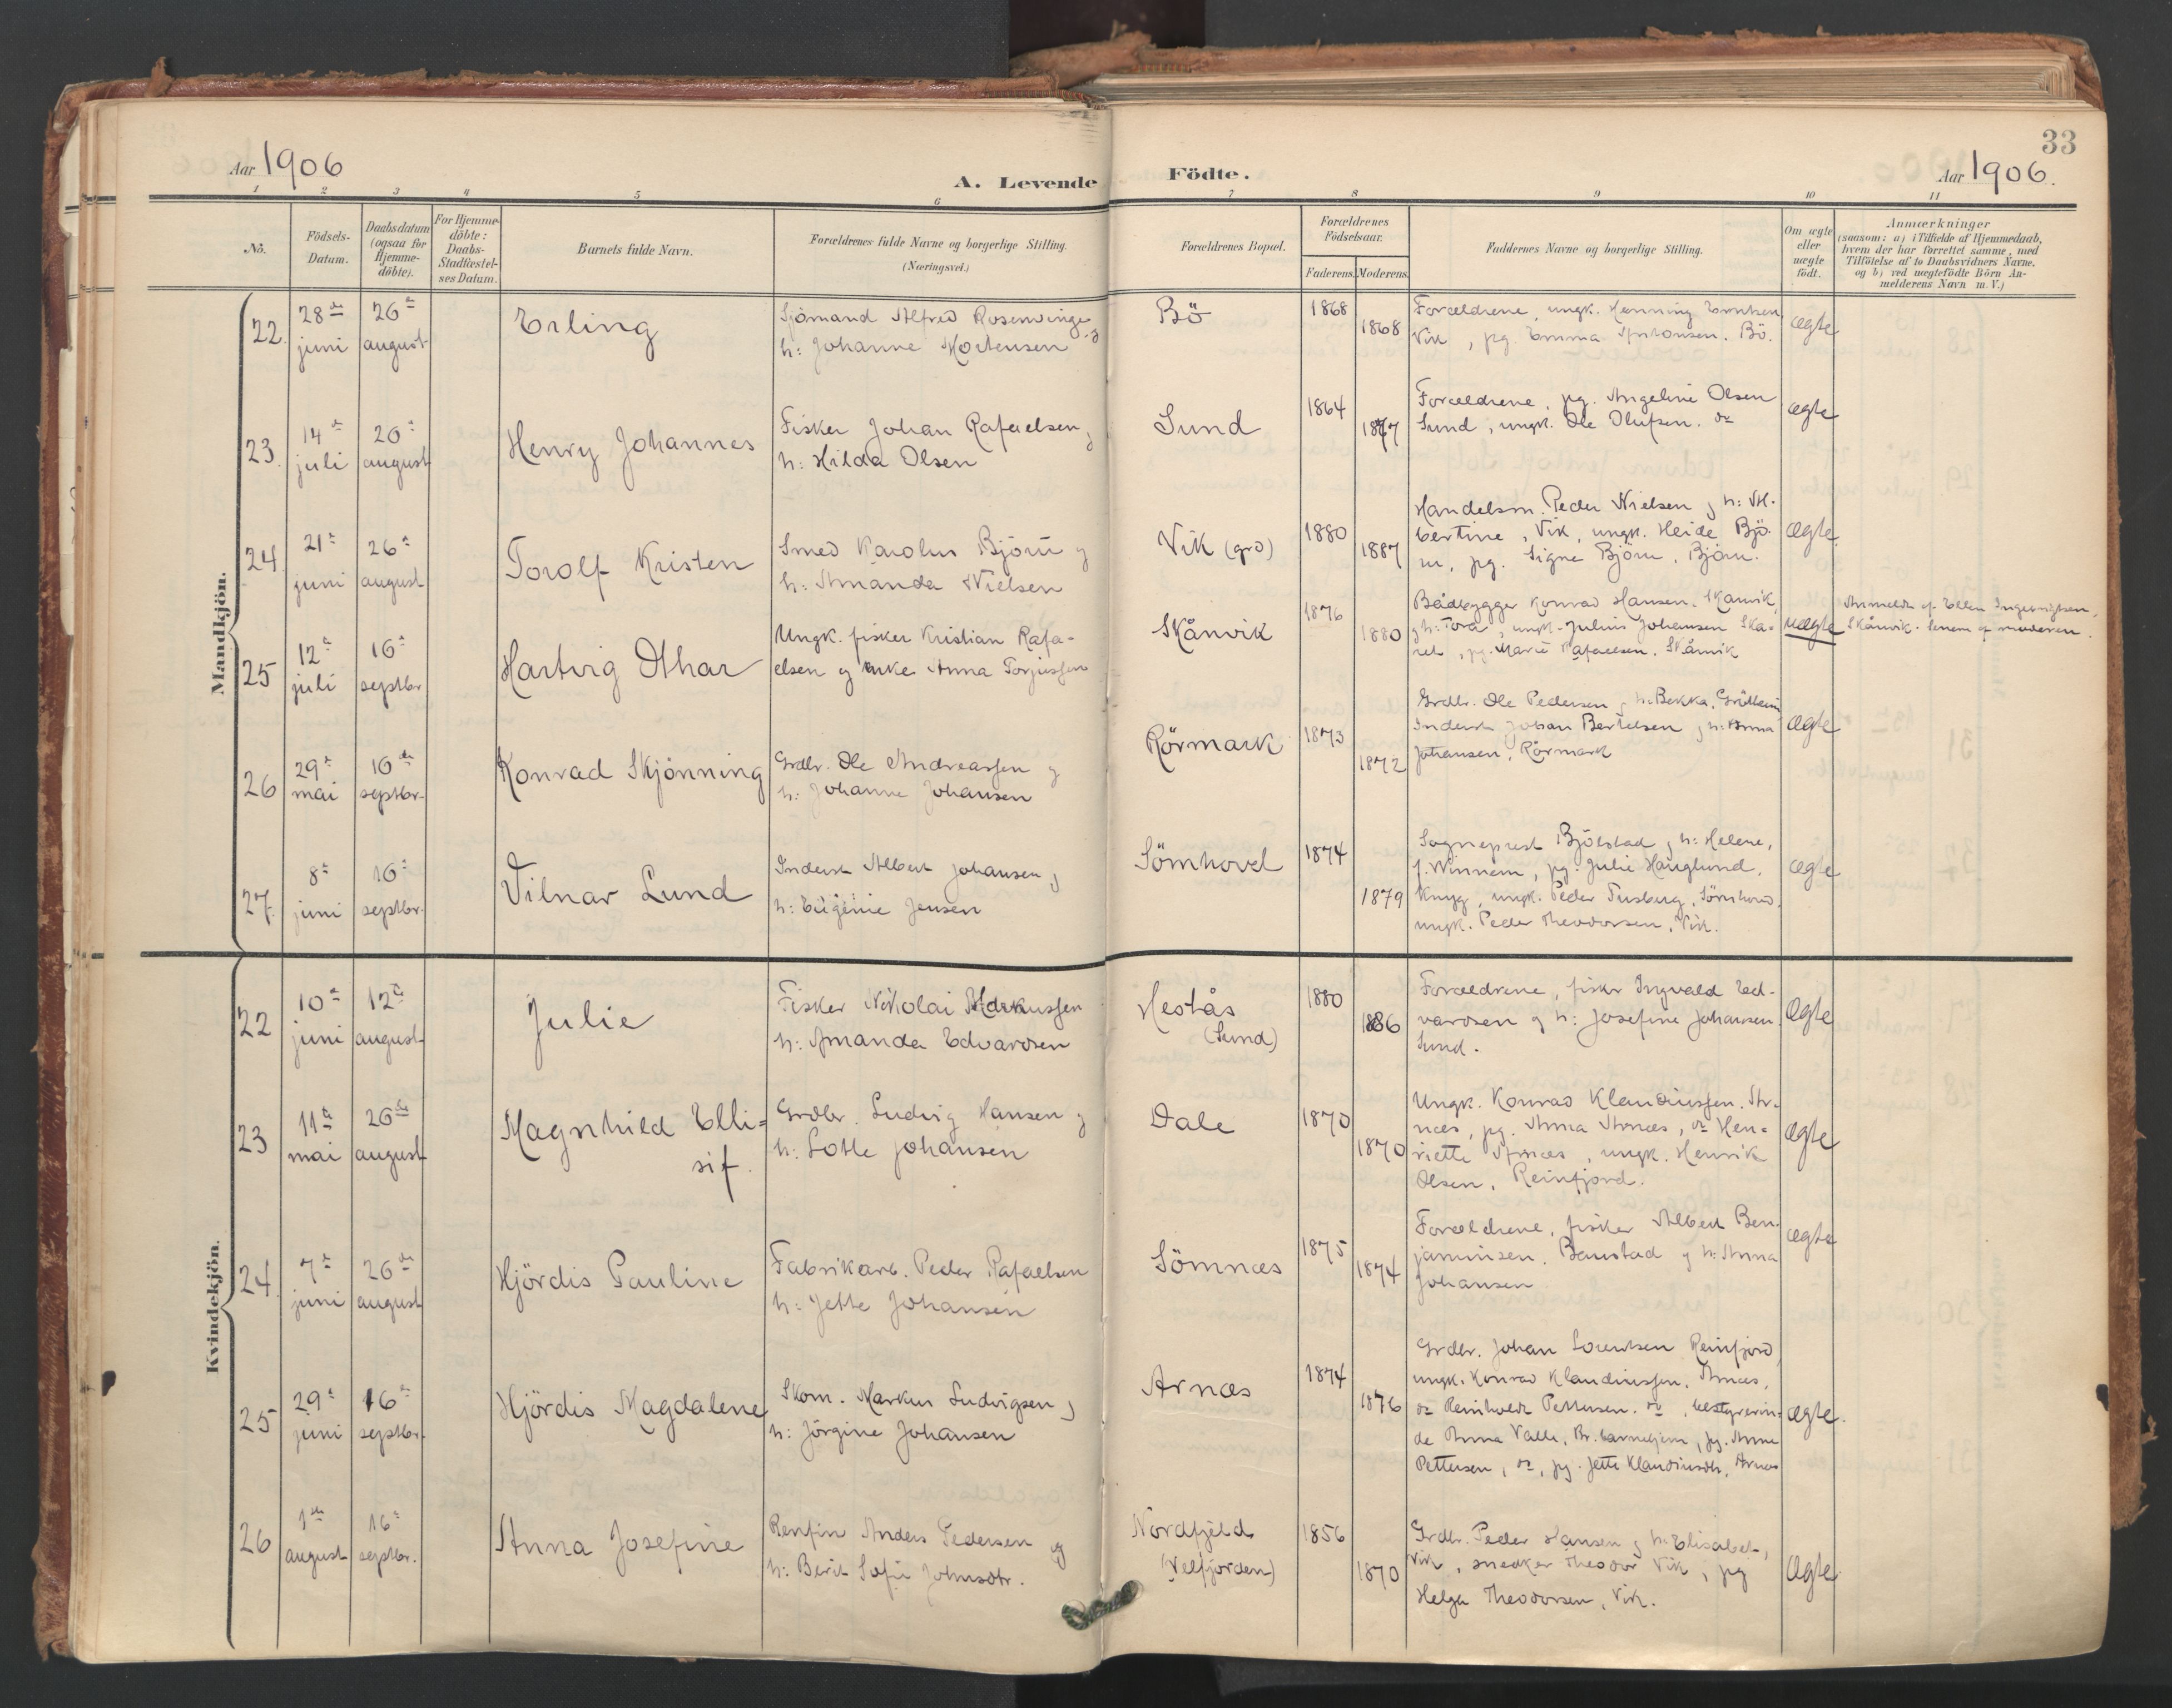 33
Aar 1906
A. Levende Födte.
Aar 1906.
1 2 3 4 5 6 7 8 9 10 11
No.
Födsels-
Datum.
Daabsdatum
(ogsaa for
Hjemme-
döbte).
For Hjemme-
döbte:
Daabs-
Stadfæstel-
ses Datum.
Barnets fulde Navn.
Forældrenes fulde Navne og borgerlige Stilling.
(Næringsvei.)
Forældrenes Bopæl.
Forældrenes
Födselsaar.
Faderens. Moderens.
Faddernes Navne og borgerlige Stilling.
Om ægte
eller
uægte
födt.
Anmærkninger
(saasom: a) i Tilfælde af Hjemmedaab,
hvem der har forrettet samme, med
Tilföielse af to Daabsvidners Navne.
og b) ved uægtefödte Börn An-
melderens Navn m. V.)
Mandkjön.
22.
28de
juni
26de
august
Erling
Sjömand Alfred Rosenvinge og
h: Johanne Mortensen
Bö
1868
1868
Forældrene, ungk. Henning
Vik, pg. Emma Antonsen. Bö.
ægte
23.
14de
juli
26de
august
Henry Johannes
Fisker Johan Rafaelsen og
h: Hilda Olsen
Sund
1864
1877
Forældrene, pg. Angeline Olsen
Sund, ungk. Ole Olufsen. do
ægte
24.
21de
juni
26de
august
Torolf Kristen
Smed Karolus Björn og
h: Amanda Nielsen
Vik (grd)
1880
1887
Handelsm. Peder Nielsen og h: Al-
bertine, Vik, ungk. Heide Bjö-
rn, pg. Signe Björn, Björn.
ægte
25
12te
juli
16de
septbr
Hartvig Othar
Ungk. fisker Kristian Rafa-
elsen og enke Anna Torjussen
Skånvik
1876
1880
Bådbygger Konrad Hansen, Skånvik,
og h: Tora, ungk. Julius Johansen Ska-
ret, pg. Marie Rafaelsen. Skånvik
uægte
Anmeldt af Ellen Ingebrigtsen,
Skånvik. moderen.
26
29de
mai
16de
septbr.
Konrad Skjönning
Grdbr. Ole Andreassen og
h: Johanne Johansen
Rörmark
1873
1872
Grdbr. Ole Pedersen og h: Bekka, Gröttem
Inderst Johan Bertelsen og h: Anna
Johansen, Rörmark
ægte
27.
8de
juni
16de
septbr.
Vilnar Lund
Inderst Albert Johansen og
h: Eugenie Jensen
Sömhovd
1874
1879
Sogneprest Bjölstad og h: Helene,
f. Winnem, pg. Julie Hauglund,
ungk. Peder Tusberg, Sörnhovd,
ungk. Peder Theodorsen, Vik.
ægte
Kvindekjön.
22
10de
juni
12te
august
Julie
Fisker Nikolai Markussen
h: Amanda Edvardsen
Hestås
(Sund)
1880
1886
Forældrene, fisker Ingvald Ed-
vardsen og h: Josefine Johansen.
Sund.
Ægte
23
11te
mai
26de
august
Magnhild Elli=
sif.
Grdbr. Ludvig Hansen og
h: Lotte Johansen
Dale
1870
1870
Ungk. Konrad Klaudiussen. Ar-
næs, pg. Anna Arnæs, do Hen=
riette Arnæs, ungk. Henrik
Olsen, Reinfjord.
Ægte
24.
7de
juni
26de
august
Hjördis Pauline
Fabrikarb. Peder Rafaelsen
h: Jette Johansen
Sömnæs
1875
1874
Forældrene, fisker Albert Ben-
jaminsen, Baustad og h: Anna
Johansen
ægte
25
29de
juni
16de
septbr.
Hjördis Magdalene
Skom. Markus Ludvigsen og
h: Jörgine Johansen
Arnæs
1874
1876
Grdbr. Johan Lorentsen Reinfjord,
ungk. Konrad Klaudiussen. Arnæs,
do Reinholdt Pettersen. do, bestyrerin-
de Anna Valle, Br. barnehjem, pg. Anne
Pettersen, do, pg. Jette Klaudiusdtr, Arnæs
ægte.
26
1ste
august
16de
septbr.
Anna Josefine
Renfin Anders Pedersen og
h: Berit Sofie Johnsdtr.
Nordfjeld
(Velfjorden)
1856
1870
Grdbr. Peder Hansen og h: Elisabet,
Vik, snedker Theodor Vik, pg
Helga Theodorsen, Vik.
Ægte